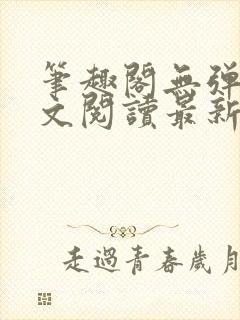 筆趣閣無彈
文閱讀最新
走過青春歲月